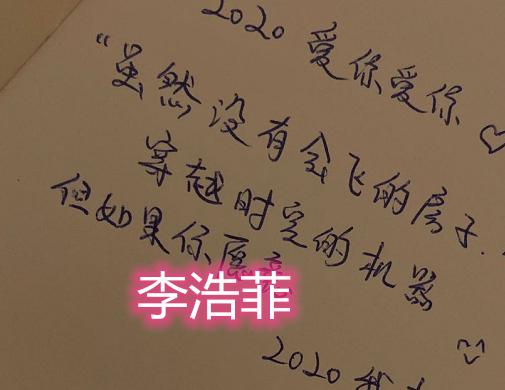 2020 爱你爱你♡
“虽然没有会飞的房子.
穿越时空的机器
但如果你愿意
李浩菲
2020